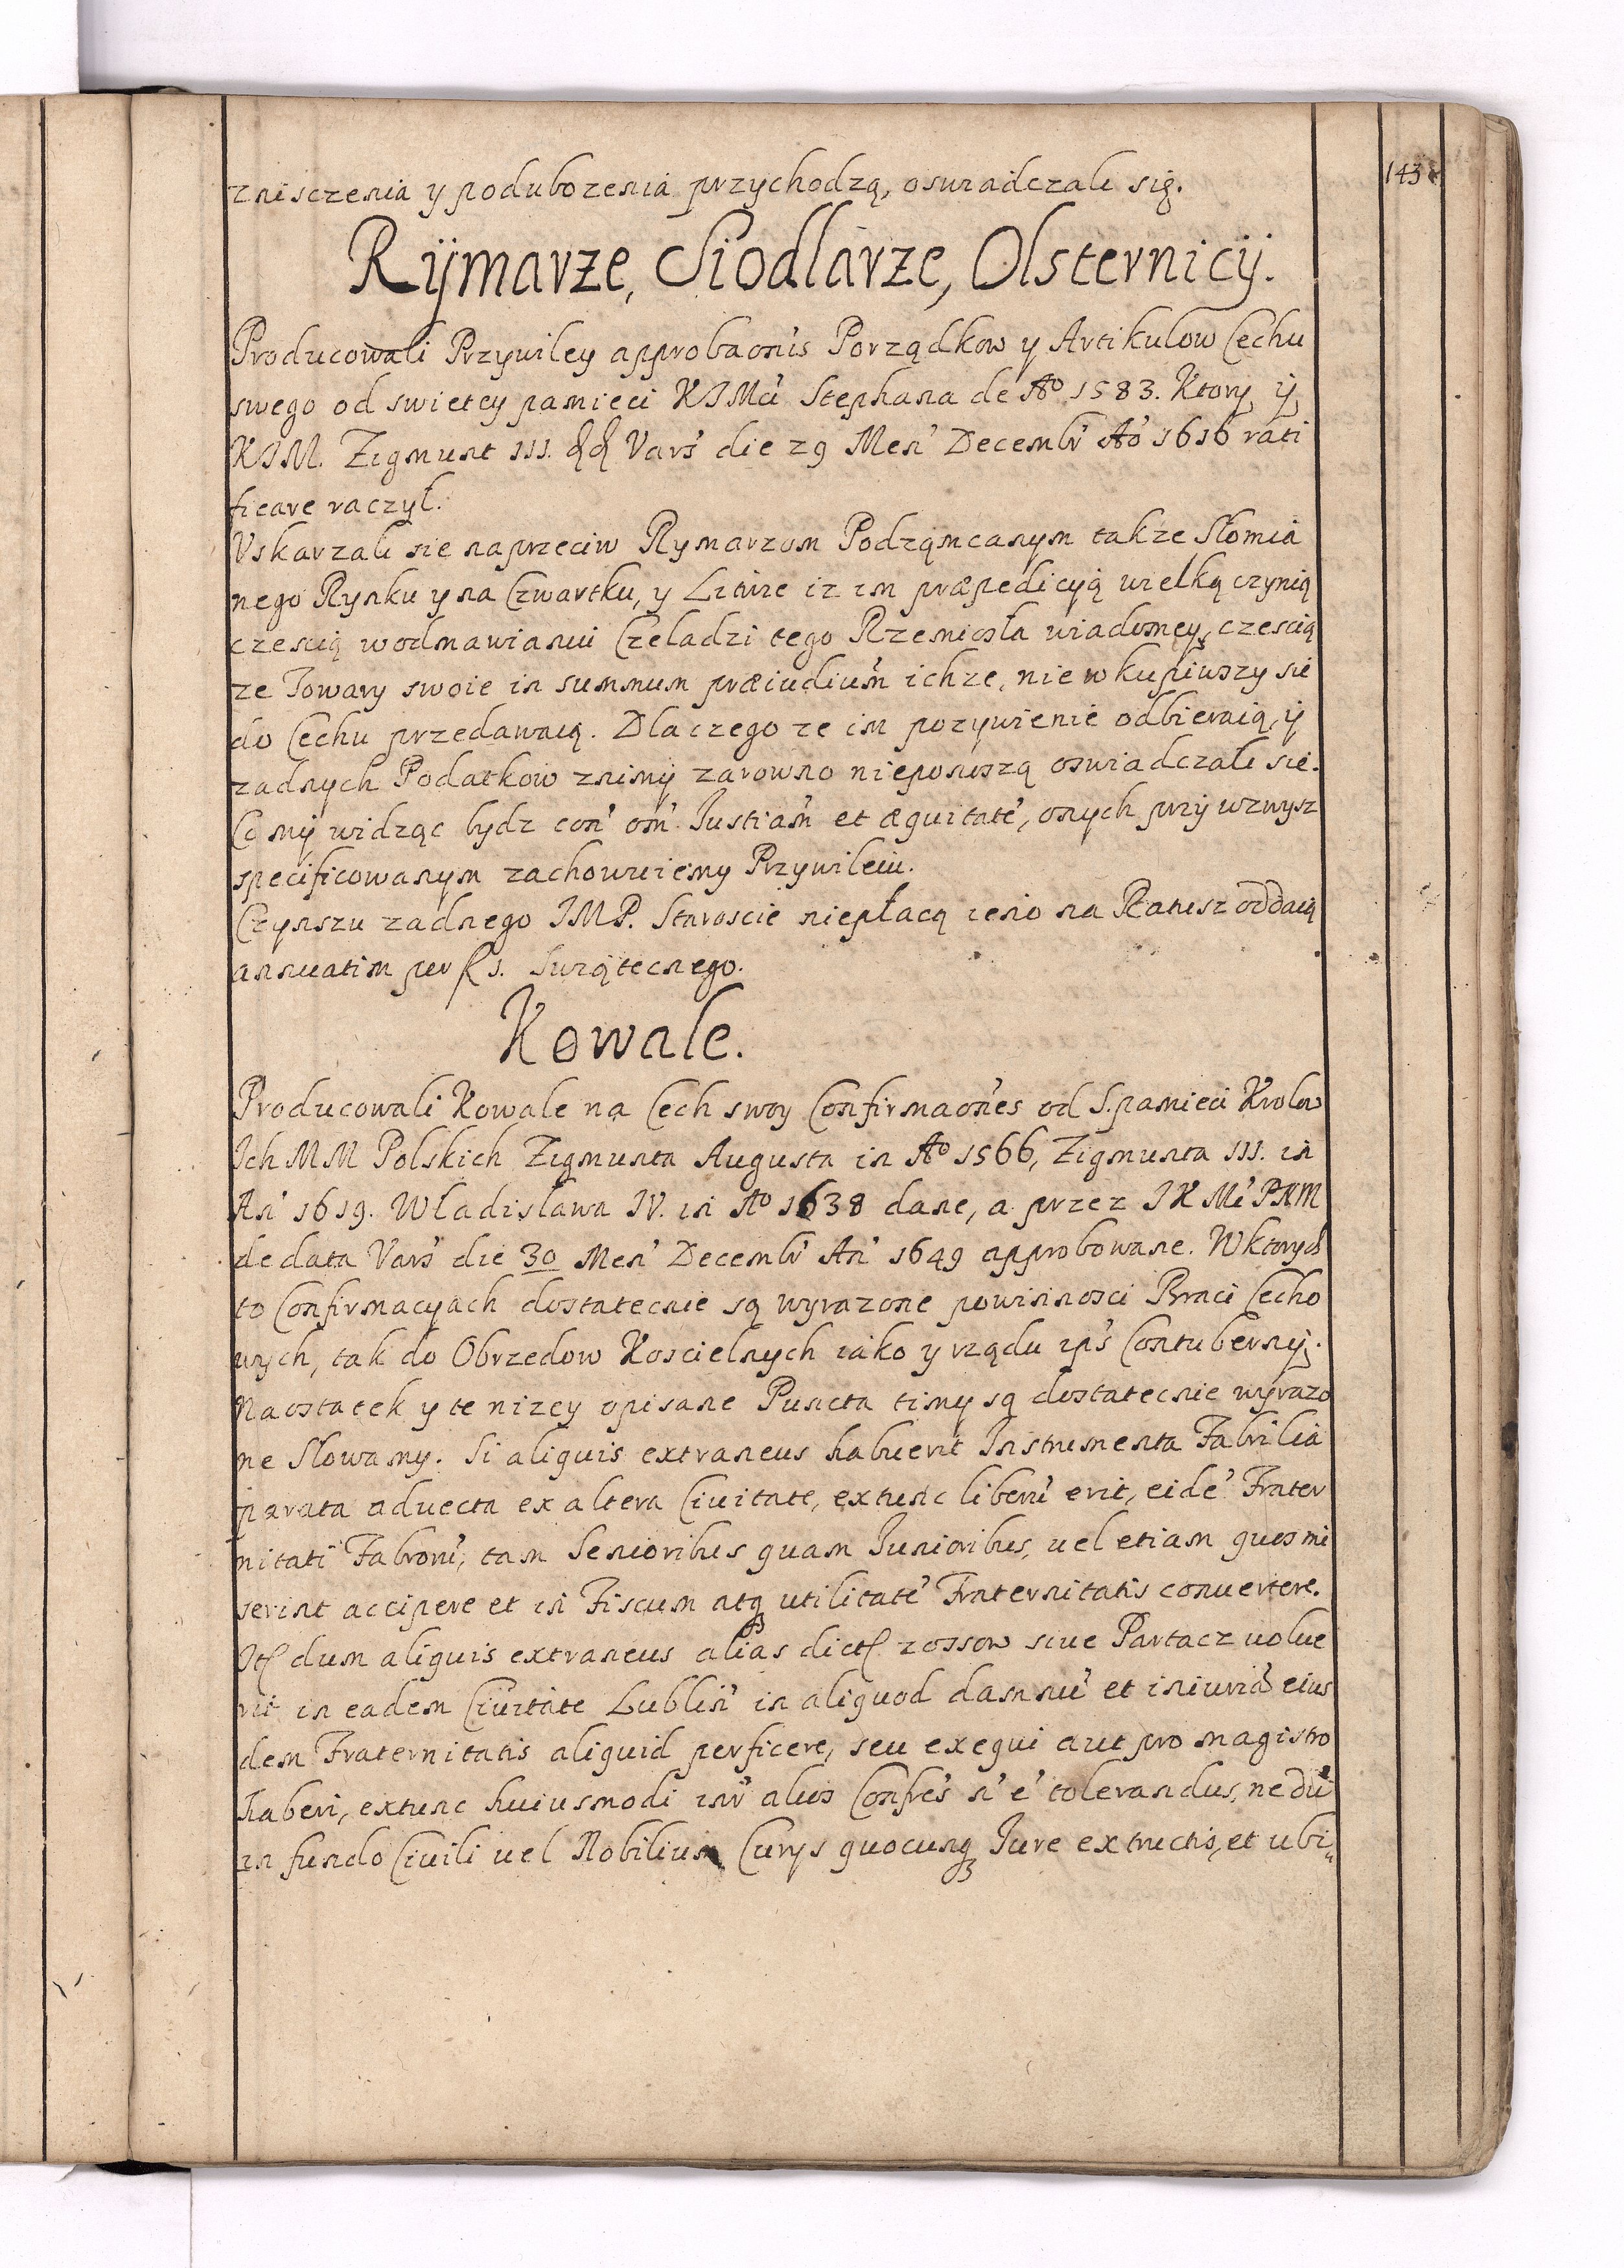 143
znisczenia y podubozenia przychodzą, oswiadczali się.
Rijmarze, Siodlarze, Olsternicij.
Producowali Przywiley approbaonis Porządkow y Artikulow Cechu
swego od swietey pamieci KJMci Stephana de Ao 1583. Ktory y
KJM. Zigmunt III. Vars' die 29 Men' Decembr' Ao 1616 rati
ficare raczył.
Vskarzali sie naprzeciw Rymarzom Podzamcanym takze Słomia
nego Rynku y na Czwartku, y Litwie iz im præpedicyią wielką czynią
czescią wodmawianiu Czeladzi tego Rzemiosła wiadomey, czescią
ze Towary swoie in summum præiudium' ichze, nie wkupiwszy sie
do Cechu przedawaią. Dlaczego ze im pozywienie odbieraią, ij
zadnych Podatkow znimij zarowno nieponoszą oswiadczali sie.
Co mij widząc bydz con' om' Justiam' et æquitate', onych przij wzwysz
specificowanym zachowuiemy Przywileiu.
Czynszu zadnego JMP. Staroscie niepłacą ieno na Ratusz oddaią
annuatim per f 1. Swiątecznego.
Kowale.
Producowali Kowale na Cech swoy Confirmaones od S. pamieci Krolow
Ich MM Polskich Zigmunta Augusta in Ao 1566, Zigmunta III. in
An' 1619. Władisława IV. in Ao 1638 dane, a przez JK Mci PNM
de data Vars' die 30 Men' Decembr' An' 1649 approbowane. Wktorych
to Confirmacyach dostatecnie są wyrazone powinnosci Braci Cecho
wych, tak do Obrzedow Koscielnych iako y rządu ips' Contubernij.
Naostatek y te nizey opisane Puncta timy są dostatecnie wyrazo
ne Slowamy. Si aliquis extraneus habuerit Instrumenta Fabrilia
parata advecta ex altera Civitate, extunc liberu' erit, eide' Frater
nitati Fabroru', tam Senioribus quam Junioribus, vel etiam quos mi
serint accipere et in Fiscum atq utilitate' Fraternitatis convertere.
It dum aliquis extraneus alias dict zossow sive Partacz volue
rit in eadem Civitate Lublin' in aliquod damnu' et iniuria' eius
dem Fraternitatis aliquid perficere, seu exequi aut pro magistro
haberi, extunc huiusmodi inr' alios Confres' n' e' tolerandus, nedu'
in fundo Civili vel Nobilium Curys quocunq Jure extructis, et ubi